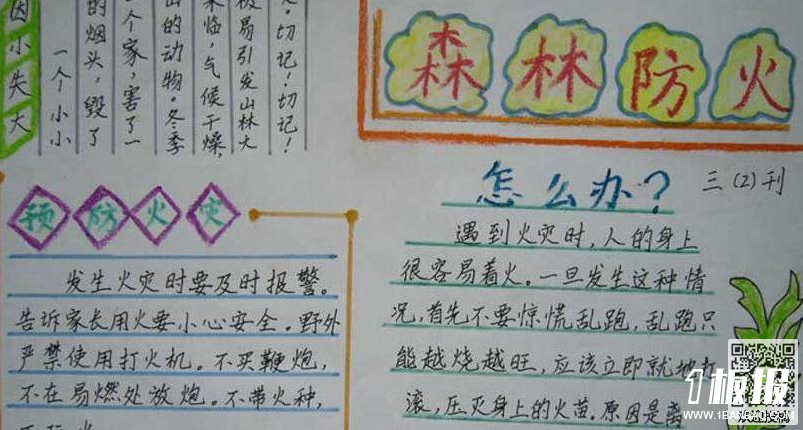 因小失大
一个小小
的烟头，毁了
个家，害了一
的动物。冬季
来临，气候干燥，
极易引发山林大
切记！切记！
森林防火
三（2）刊
预防火灾
发生火灾时要及时报警。
告诉家长用火要小心安全。野外
严禁使用打火机。不买鞭炮，
不在易燃处放炮。不带火种，
怎么办？
遇到火灾时，人的身上
很容易着火。一旦发生这种情
况，首先不要惊慌乱跑，乱跑只
能越烧越旺，应该立即就地打
滚，压灭身上的火苗。原因是离
1板报
WWW.1BANBAO.COM